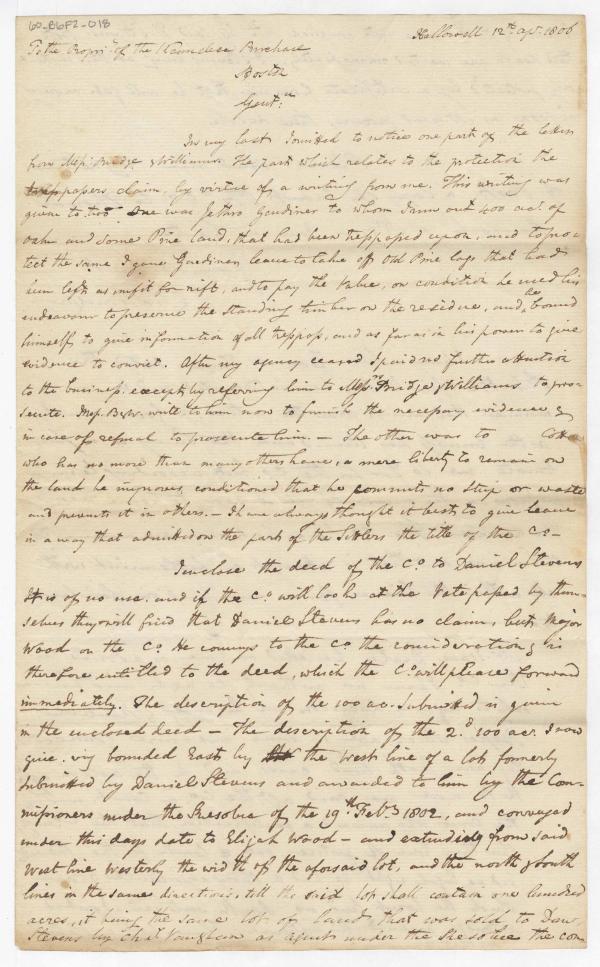 60-B6F2-018
Hallowell 12th apr. 1806
To the Propri.rs of the Kennebec Purchase
Boston
Gent.n
In my last I omitted to notice one part of the letter
from Messrs. Bridge & Williams. The part which relates to the protection the
trespassers claim, by virtue of a writing from me. This writing was
given to two. One was Jethro Gardiner to whom I run out 400 acs. of
Oak and some Pine land, that had been tresspassed upon, and to pro=
tect the same I gave Gardiner leave to take off old Pine logs that had
been left as unfit for rift, and to pay the value, on condition he used his
endeavour to preserve the standing timber on the residue, and he bound
himself to give information of all tresspass, and as far as in his power to give
evidence to convict. After my agency ceased I paid no further attention
to the business, except by referring him to Messrs Bridge & Williams to pro=
secute. Messrs. B & W. write to him now to furnish the necessary evidence &
in case of refusal to prosecute him. — The other was to
who has no more than many others have, a mere liberty to remain on
the land he improves, conditioned that he commits no strip or waste
and prevents it in others. — I have always thought it best to give leave
in a way that admitted on the part of the Settlers the title of the Co. —
I enclose the deed of the Co. to Daniel Stevens
It is of no use. and if the Co. will look at the Vote passed by them=
selves they will find that Daniel Stevens has no claim, but Major
Wood on the Co. He conveys to the Co. the consideration, & is
therefore entitled to the deed, which the Co. will please forward
immediately. The description of the 100 ac. submitted is given
in the enclosed deed — The description of the 2.d 100 ac. I now
give. viz bounded East by the West line of a lot formerly
submitted by Daniel Stevens and awarded to him by the Com=
missioners under the Resolve of the 19th Feby. 1802, and conveyed
under this days date to Elijah Wood — and extending from said
West line Westerly the width of the aforsaid lot, and the north & South
lines in the same directions, till the said lot shall contain one hundred
acres, it being the same lot of land, that was sold to Danl.
Stevens by Chas. Vaughan as agent under the Resolve the com